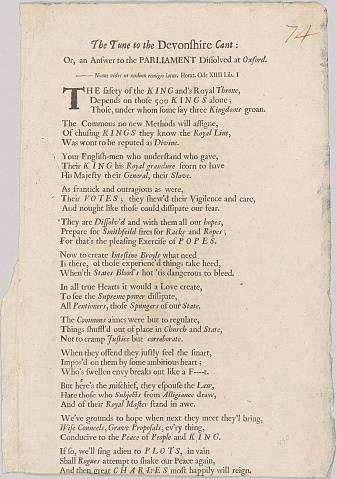 74
The Tune to the Devonshire Cant:
Or, an Answer to the PARLIAMENT Dissolved at Oxford.
Nonne vides ut nudum remigio latus. Horat. Ode XIIII Lib. I
THE safety of the KING and's Royal Throne,
Depends on those 500 KINGS alone;
Those, under whom some say three Kingdoms groan.
The Commons no new Methods will assigne,
Of chusing KINGS they know the Royal Line,
Was wont to be reputed as Divine.
Your English-men who understand who gave,
Their KING his Royal grandure scorn to have
His Majesty their General, their Slave.
As frantick and outragious as were,
Their VOTES; they shew'd their Vigilence and care,
And nought like those could dissipate our fear.
They are Dissolv'd and with them all our hopes,
Prepare for Smithfeild fires for Racks and Ropes;
For that's the pleasing Exercise of POPES.
Now to create Intestine Broyls what need
Is there, of those experienc'd things take heed,
When'th States Blood's hot 'tis dangerous to bleed.
In all true Hearts it would a Love create,
To see the Supreme power dissipate,
All Pentioners, those Spungers of our State.
The Commons aimes were but to regulate,
Things shuffl'd out of place in Church and State,
Not to cramp Justice but corroborate.
When they offend they justly feel the smart,
Impos'd on them by some ambitious heart;
Who's swellen envy breaks out like a F----t.
But here's the mischief, they espouse the Law,
Hate those who Subjects from Alligiance draw,
And of their Royal Master stand in awe.
We've grounds to hope when next they meet they'l bring,
Wise Councels, Grave Proposals, ev'ry thing,
Conducive to the Peace of People and KING.
If so, we'll sing adieu to PLOTS, in vain
Shall Rogues attempt to shake our Peace again,
And then great CHARLES most happily will reign.